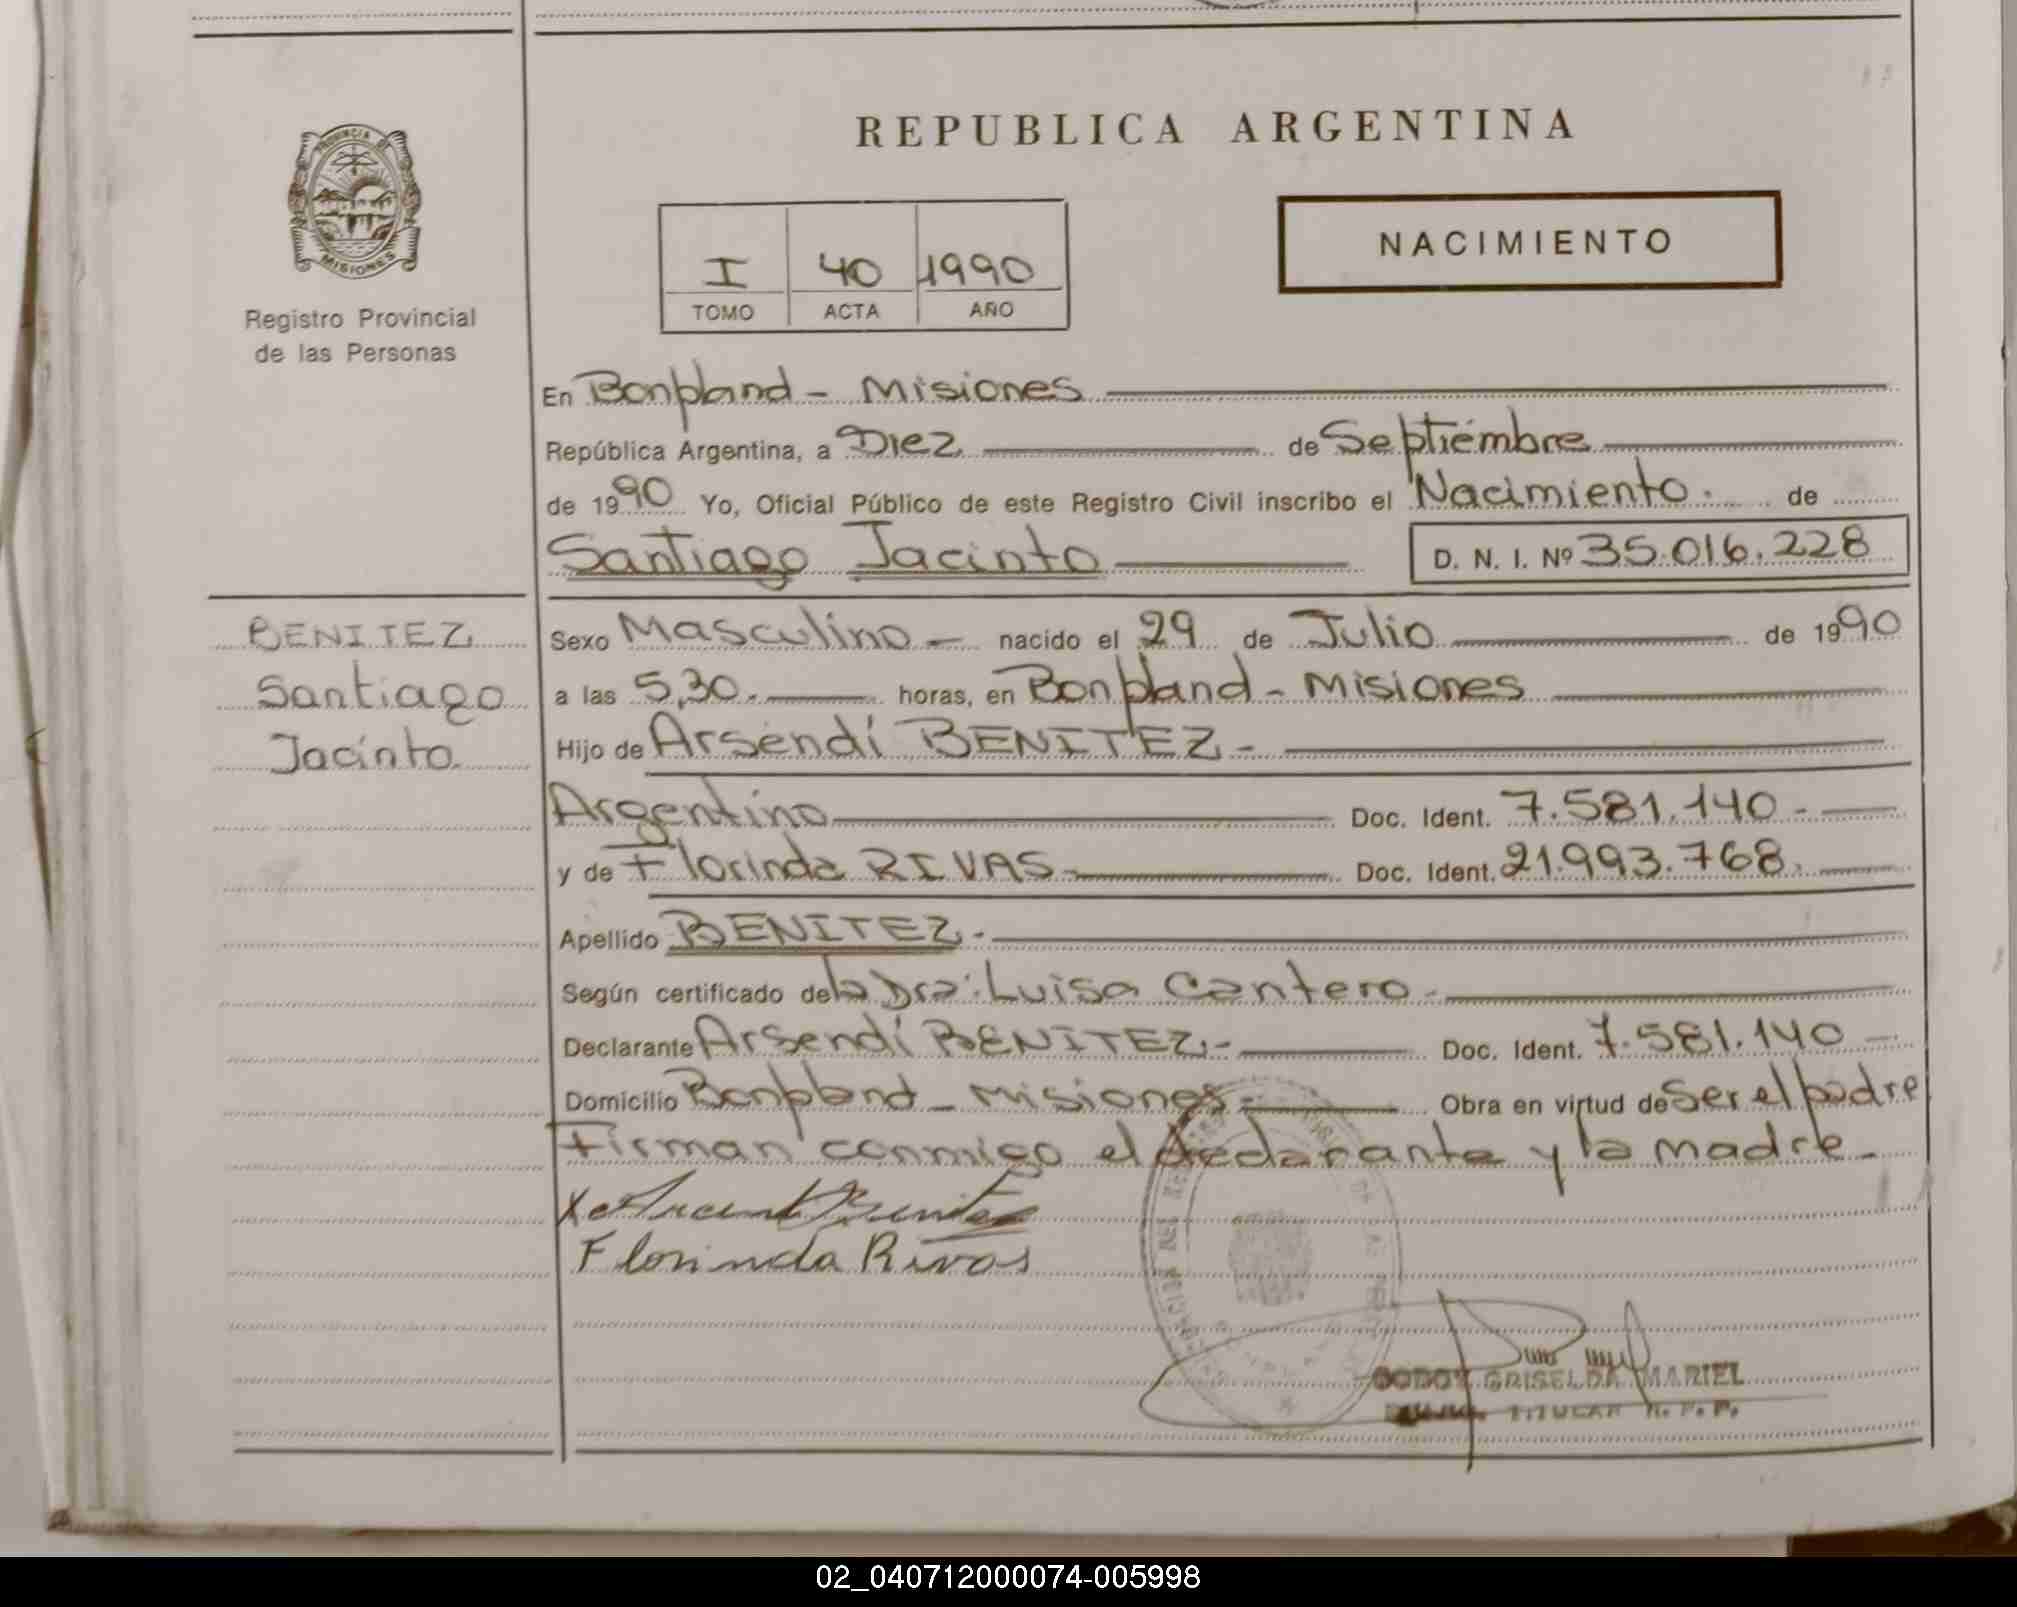 PROVINCIA DE
MISIONES
Registro Provincial
de las Personas
REPUBLICA ARGENTINA
I 40 1990
TOMO ACTA AÑO
NACIMIENTO
En Bonpland - Misiones
República Argentina, a Diez de Septiembre
de 1990 Yo, Oficial Público de este Registro Civil inscribo el Nacimiento. de
Santiago Jacinto D. N. I. Nº 35.016.228
BENITEZ
Santiago
Jacinto
Sexo Masculino - nacido el 29 de Julio de 1990
a las 5,30. horas, en Bonpland - Misiones
Hijo de Arsendí BENITEZ -
Argentino Doc. Ident. 7.581.140 -
y de Florinda RIVAS - Doc. Ident. 21.993.768.
Apellido BENITEZ -
Según certificado de la Dra: Luisa Cantero -
Declarante Arsendí BENITEZ - Doc. Ident. 7.581.140 -
Domicilio Bonpland - Misiones - Obra en virtud de Ser el padre
Firman conmigo el declarante y la madre -
Benitez
Florinda Rivas
GODOY GRISELDA MARIEL
TITULAR R. P. P.
02_040712000074-005998